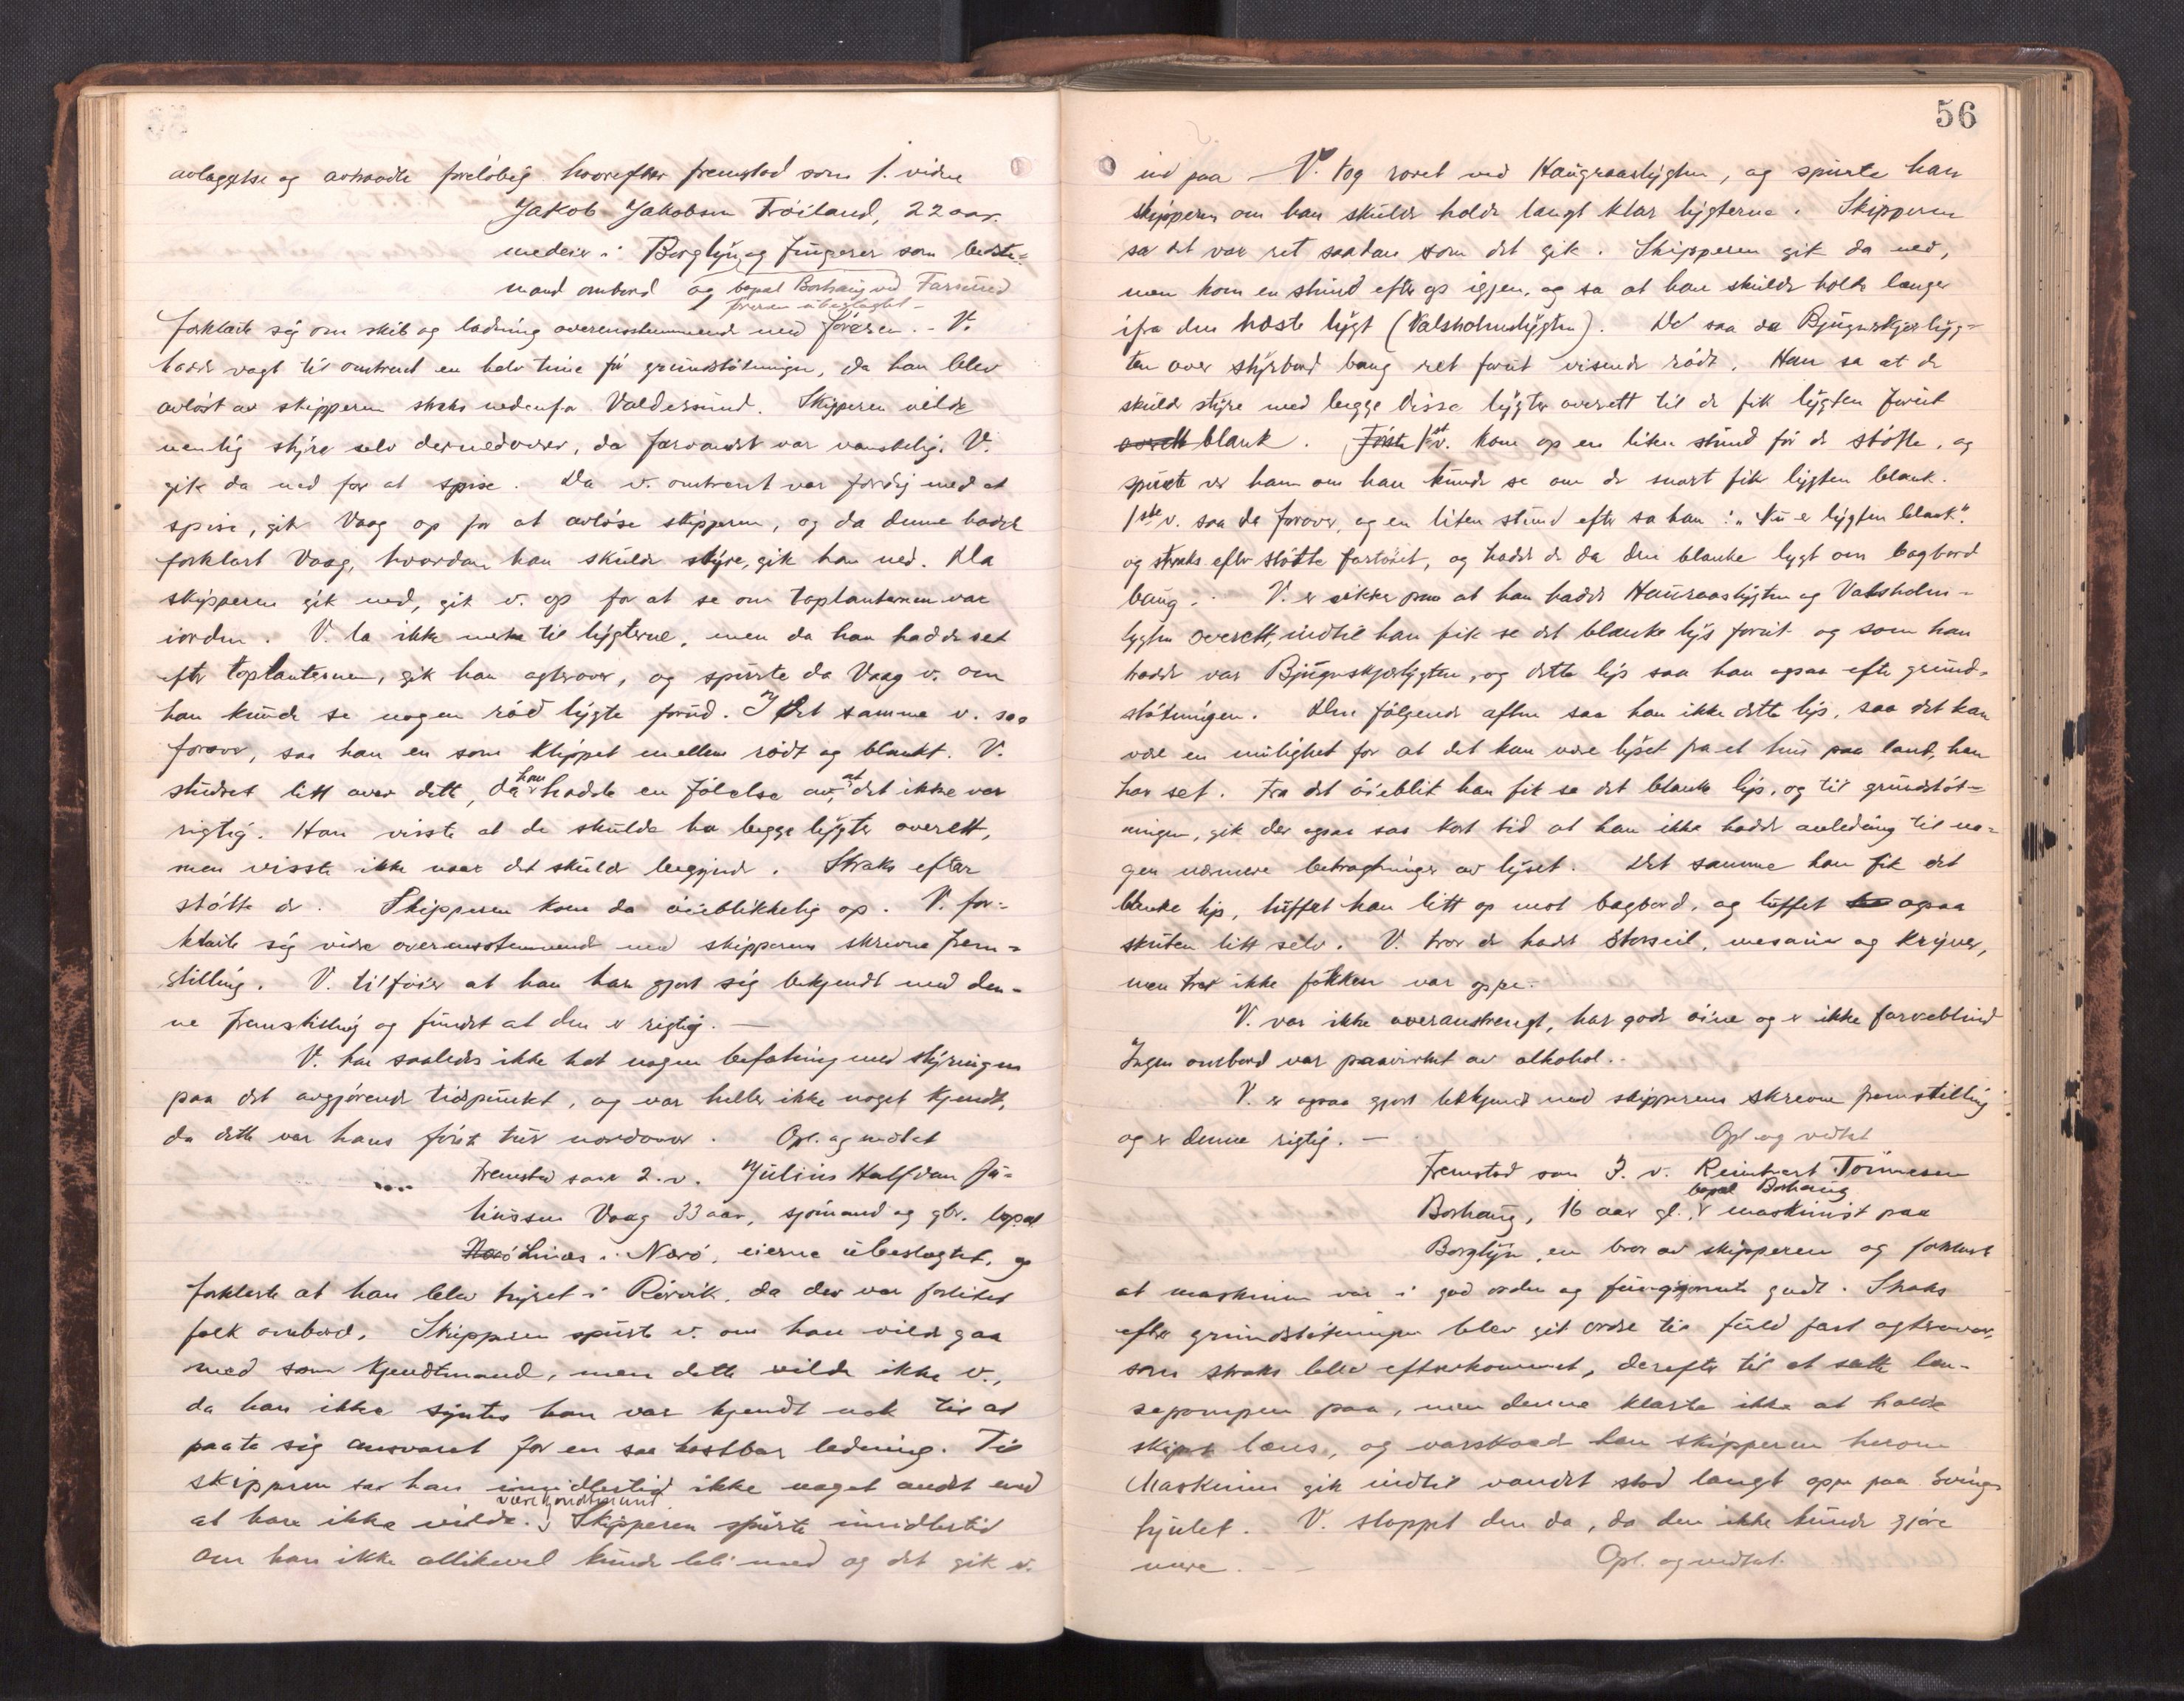 avlæggelse og avhørte foreløbig hvorefter fremstod som 1. vidne
Jakob Jakobsen Trøiland, 22 aar.
medeier i Borglyn og fungerer som bedste-
mand ombord og bopæl Borhaug ved Farsund
føreren ubeslægtet -
forklarte sig om skib og ladning overensstemmende med føreren. - V.
hadde vagt til omtrent en halv time før grundstøtningen, da han blev
avløst av skipperen straks nedenfor Valdersund. Skipperen vilde
nemlig styre selv dernedover, da farvandet var vanskelig. V.
gik da ned for at spise. Da v. omtrent var færdig med at
spise, gik Vaag op for at avløse skipperen, og da denne hadde
forklart Vaag, hvordan han skulde styre, gik han ned. Da
skipperen gik ned, gik v. op for at se om toplanternen var
iorden. V. la ikke merke til lygterne, men da han hadde set
efter toplanternen, gik han agterover, og spurte da Vaag v. om
han kunde se nogen rød lygte forud. I det samme v. saa
forover, saa han en som klippet mellem rødt og blankt. V.
studset litt over dette, da han hadde en følelse av, at det ikke var
rigtig. Han visste at de skulde ha begge lygter overett,
men visste ikke naar det skulde begynde. Straks efter
støtte de. Skipperen kom da øieblikkelig op. V. for-
klarte sig videre overensstemmende med skipperens skrevne frem-
stilling. V. tilføier at han har gjort sig bekjendt med den-
ne fremstilling og fundet at den er rigtig. —
V. har saaledes ikke hat nogen befatning med styringen
paa det avgjørende tidspunkt, og var heller ikke noget kjendt,
da dette var hans første tur nordover. Opl. og vedtat
Fremstod som 2. v. Julius Halfdan Ju-
liussen Vaag 33 aar, sjømand og gbr. bopæl
i Nærø, eierne ubeslægtet, og
forklarte at han blev hyret i Rørvik, da der var forlitet
folk ombord. Skipperen spurte v. om han vilde gaa
med som kjendtmand, men dette vilde ikke v.,
da han ikke syntes han var kjendt nok til at
paata sig ansvaret for en saa kostbar ladning. Til
skipperen sa han imidlertid ikke noget andet end
at han ikke vilde være kjendtmand. Skipperen spurte imidlertid
om han ikke allikevel kunde bli med og det gik v.
56
ind paa — V. tog roret ved Haugraaslygten, og spurte han
skipperen om han skulde holde langt klar lygterne. Skipperen
sa det var ret saadan som det gik. Skipperen gik da ned,
men kom en stund efter op igjen, og sa at han skulde holde længer
ifra den næste lygt (Valsholmslygten). De saa da Bjugnskjærlyg-
ten over styrbord baug ret forut visende rødt. Han sa at de
skulde styre med begge disse lygter overett til de fik lygten forut
blank. 1st v. kom op en liten stund før de støtte, og
spurte v. ham om han kunde se om de snart fik lygten blank.
1ste v. saa da forover, og en liten stund efter sa han: "Nu er lygten blank".
og straks efter støtte fartøiet, og hadde de da den blanke lygt om bagbord
baug. V. er sikker paa at han hadde Hauraaslygten og Valsholm-
lygten overett, indtil han fik se det blanke lys forut og som han
trodde var Bjugnskjærlygten, og dette lys saa han ogsaa efter grund-
støtningen. Den følgende aften saa han ikke dette lys, saa det kan
være en mulighet for at det kan være lyset fra et hus paa land, han
har set. Fra det øieblik han fik se det blanke lys, og til grundstøt-
ningen, gik der ogsaa saa kort tid at han ikke hadde anledning til no-
gen nærmere betragtninger av lyset. Det samme han fik det
blanke lys, luffet han litt op mot bagbord, og luffet ogsaa
skuten litt selv. V. tror de hadde storseil, mesanen og klyver,
men tror ikke fokken var oppe.
V. var ikke overanstrengt, har gode øine og er ikke farveblind
Ingen ombord var paavirket av alkohol.
V. er ogsaa gjort bekjendt med skipperens skrevne fremstilling
og er denne rigtig. — Opl. og vedtat
Fremstod som 3. v. Reinhart Tønnesen
Borhaug, 16 aar gl., bopæl Borhaug er maskinist paa
Borglyn, en bror av skipperen og forklarte
at maskinen var i god orden og fungerte godt. Straks
efter grundstøtningen blev git ordre til fuld fart agterover,
som straks blev efterkommet, derefter til at sætte læn-
sepompen paa, men denne klarte ikke at holde
skipet læns, og varskodde han skipperen herom
Maskinen gik indtil vandet stod langt oppe paa sving-
hjulet. V. stoppet den da, da den ikke kunde gjøre
mere. — Opl. og vedtat.